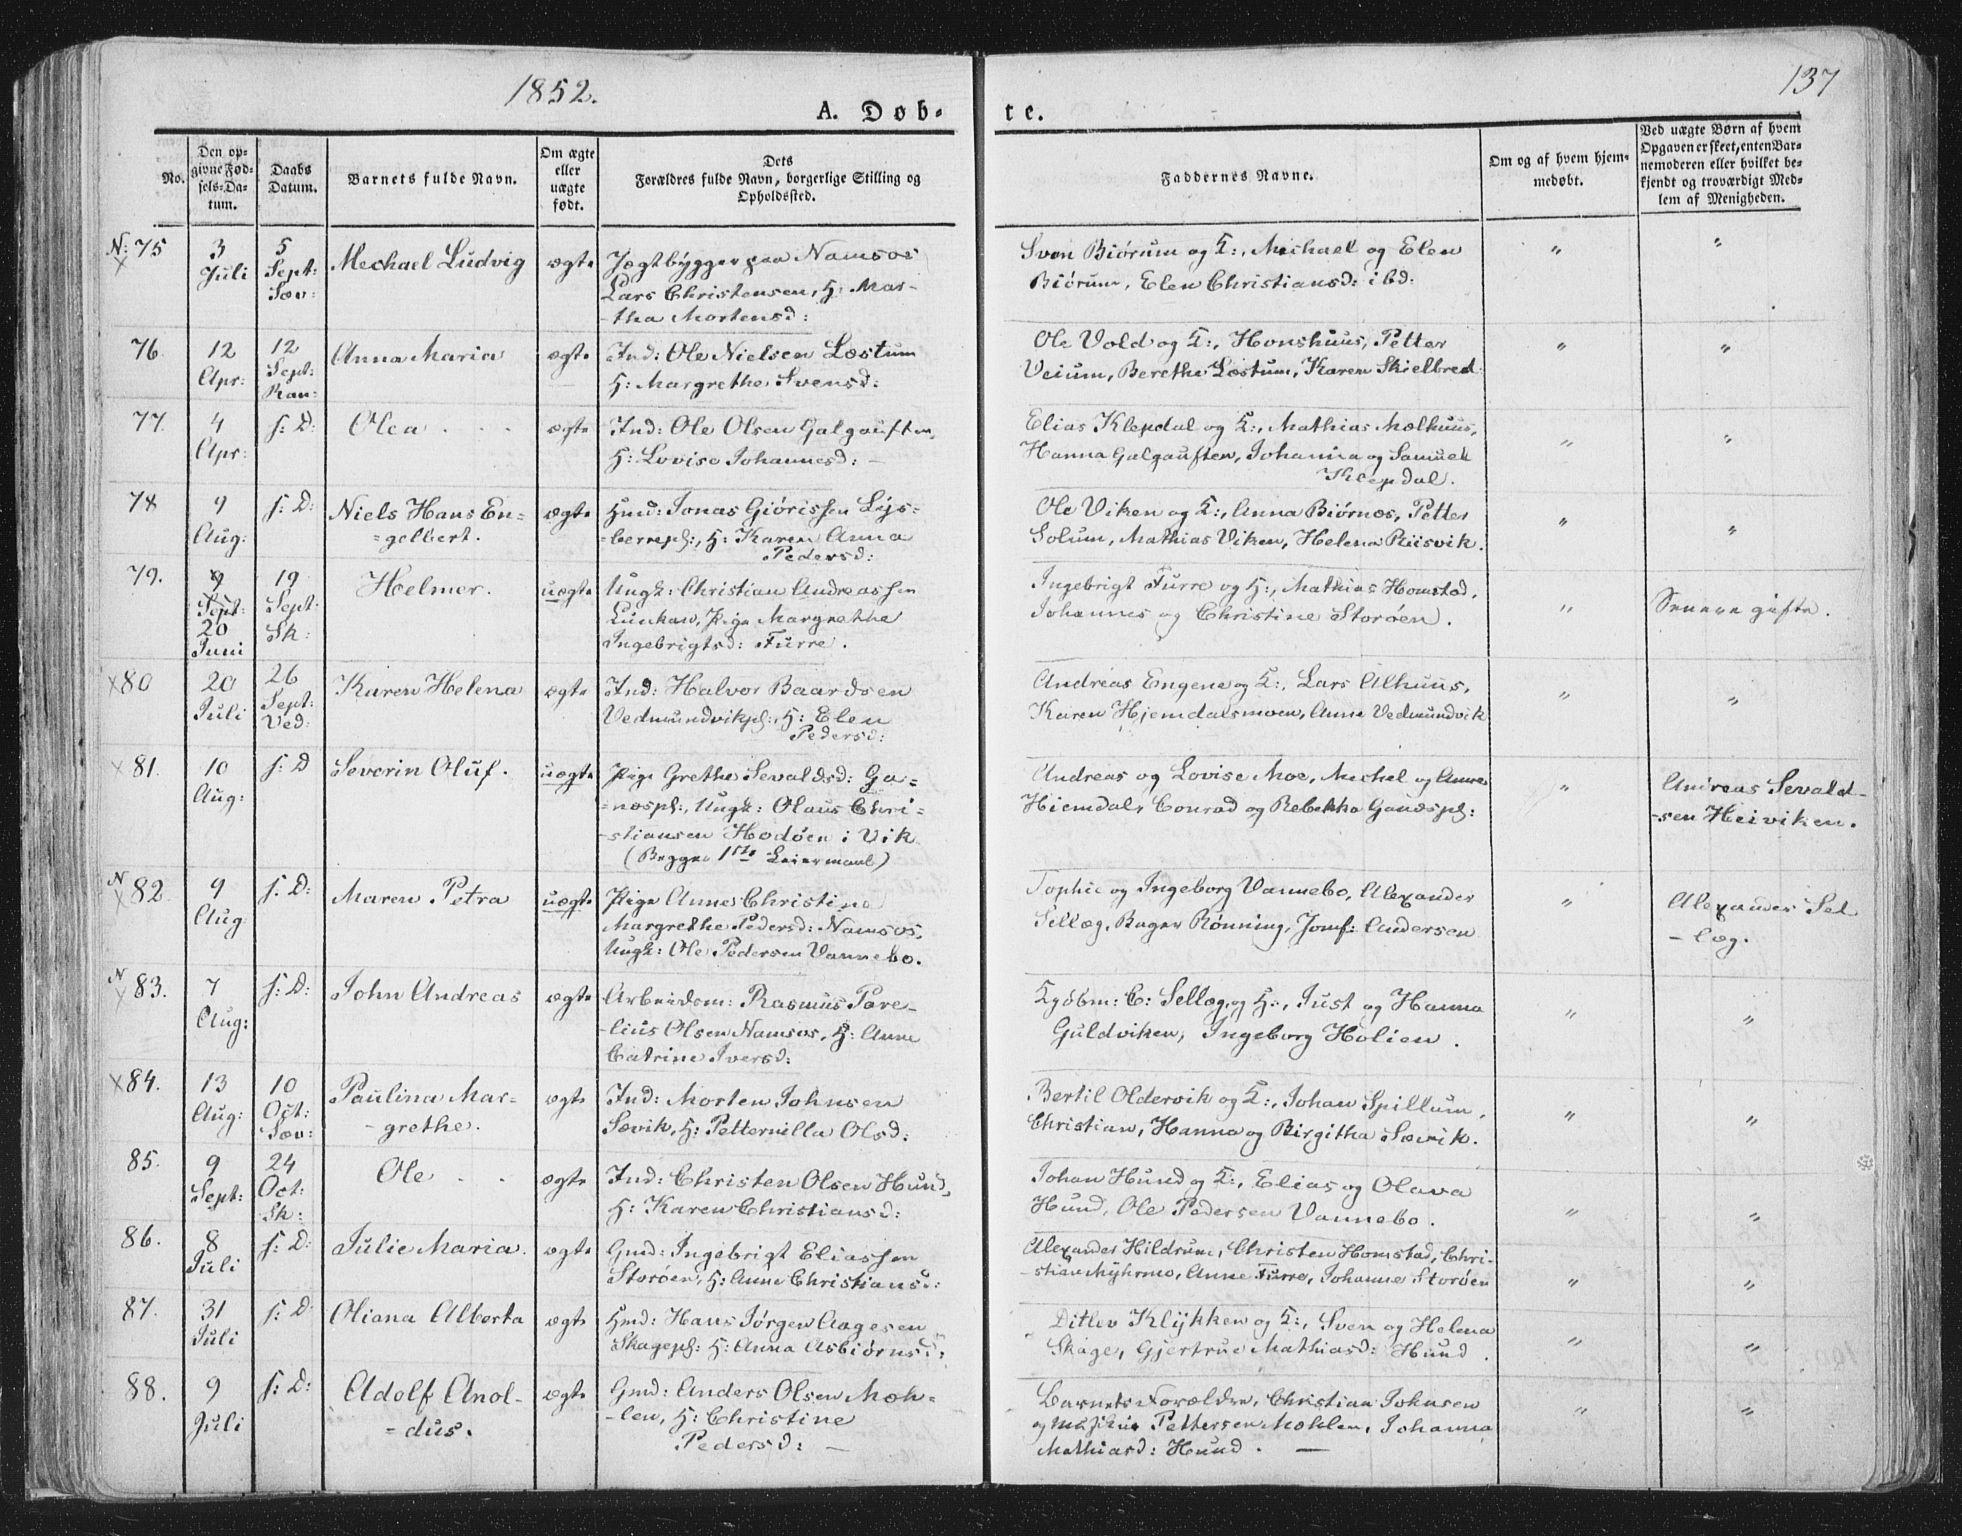 1852.
137
A. Døb-
te.
No.
Den op-
givne Fød-
sels-Da-
tum.
Daabs
Datum.
Barnets fulde Navn.
Om ægte
eller
uægte
født.
Dets
Forældres fulde Navn, borgerlige Stilling og
Opholdssted.
Faddernes Navne.
Om og af hvem hjem-
medøbt.
Ved uægte Børn af hvem
Opgaven er skeet, enten Bar-
nemoderen eller hvilket be-
kjendt og troværdigt Med-
lem af Menigheden.
N: 75
3
Juli
5
Sept:
Sæv:
Mechael Ludvig
ægte
Jægtbygger paa Namsos
Lars Christensen, H: Mar-
-tha Mortensd:
Sven Biørum og K:, Michael og Elen
Biørum, Elen Christiansd: ibd:
"
"
76.
12
Apr:
12
Sept:
Ran:
Anna Maria
ægte
Ind: Ole Nielsen Læstum
H: Margrethe Svensd:
Ole Vold og K:, Honshuus, Petter
Veium, Berethe Læstum, Karen Skielbred
"
"
77.
4
Apr:
s: D:
Olea . . .
ægte
Ind: Ole Olsen Galgauften,
H: Lovise Johannesd: -
Elias Klepdal og K:, Mathias Mælhuus,
Hanna Galgauften, Johanna og Samuel
Klepdal.
"
"
78
9
Aug:
s: D:
Niels Hans En-
=gelbert.
ægte
Hmd: Jonas Giørissen Lys-
-bermpl:, H: Karen Anna
Pedersd:
Ole Viken og K:, Anna Biørnes, Petter
Solum, Mathias Viken, Helena Riisvik.
"
"
79.
9
Sept:
20
Juni
19
Sept:
Sk:
Helmer.
uægte
Ungk: Christian Andreassen
Pige Margrethe
Ingebrigtsd: Furre.
Ingebrigt Furre og H:, Mathias Homstad,
Johannes og Christine Storøen.
"
Senere gifte.
x80
20
Juli
26
Sept:
Ved:
Karen Helena
ægte
Ind: Halvor Baardsen
Vedmundvikpl:, H: Elen
Pedersd:
Andreas Engene og K:, Lars Alhuus,
Karen Hjemdalsmoen, Anne Vedmundvik
"
"
x 81.
10
Aug:
s: D
Severin Oluf.
uægte
Pige Grethe Sevaldsd: Ga-
-næspl:, Ungk: Olaus Chri-
-stiansen Hodøen i Vik
(Begges 1ste Leiermaal)
Andreas og Lovise Moe, Michel og Anne
Hiemdal, Conrad og Rebekka Ganæspl:
"
Andreas Sevald-
-sen Heiviken.
N 82.
9
Aug
s: D:
Maren Petra
uægte
Pige Anne Christina
Margrethe Pedersd: Namsos,
Ungk: Ole Pedersen Vannebo.
Sophie og Ingeborg Vannebo, Alexander
Sellæg, Bager Rønning, Jomf: Andersen
"
Alexander Sel
-læg.
N 83.
7
Aug:
s: D:
John Andreas
ægte
Arbeidsm: Rasmus Pare-
-lius Olsen Namsos, H: Anne
Catrine Iversd:
Kjøbm: C: Sellæg, og H:, Just og Hanna
Guldviken, Ingeborg Holien.
"
"
x84.
13
Aug:
10
Oct:
Sæv:
Paulina Mar-
-grethe.
ægte
Ind: Morten Johnsen
Sævik, H: Petternilla Olsd:
Bertil Oldervik og K:, Johan Spillum,
Christian, Hanna og Birgitha Sævik.
"
"
85.
9
Sept:
24
Oct:
Sk:
Ole . .
ægte
Ind: Christen Olsen Hund,
H: Karen Christiansd:
Johan Hund og K:, Elias og Olava
Hund, Ole Pedersen Vannebo.
"
"
86.
8
Juli
s: D:
Julie Maria.
ægte
Gmd: Ingebrigt Eliassen
Storøen, H: Anne Christiansd:
Alexander Hildrum, Christen Homstad, Chri-
-stian Myhrmo, Anne Furre, Johanne Storøen
"
"
87.
31
Juli
s: D:
Oliana Alberta
ægte
Hmd: Hans Jørgen Aagesen
Skagepl: H: Anna Asbiørnsd:
Ditlev Klykken og K:, Sven og Helena
Skage, Gjertrue Mathiasd: Hund.
"
"
88.
9
Juli
s: D:
Adolf Anol-
=dus.
ægte
Gmd: Anders Olsen Mæh-
-len, H: Christine
Pedersd: -
Barnets Forældre, Christian Johnsen
og Pettersen Mæhlen, Johanna
Mathiasd: Hund. -
"
"